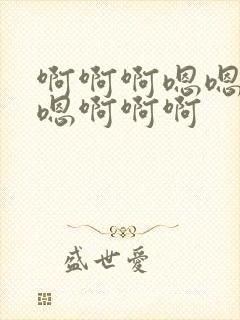 啊啊啊嗯嗯
嗯啊啊啊
盛世爱